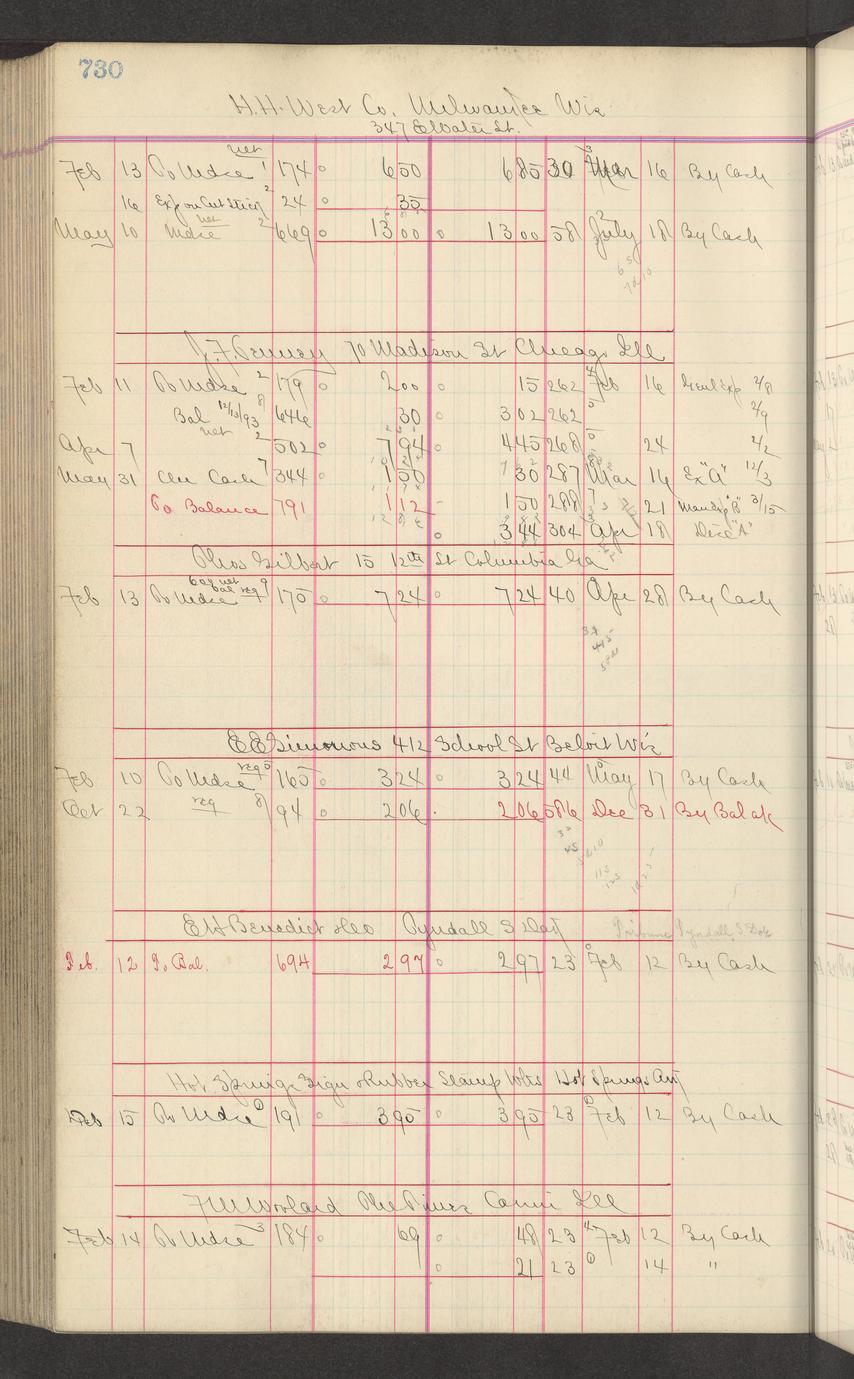 730
H.H. West Co. Milwaukee Wis
347 E Water St.
net
Feb 13 To Mdse 1 174 0 6 50 6 85 30 3 Mar 16 By Cash
16 Exp on Cut 2 24 0 35
net
May 10 Mdse 2 669 0 13 00 0 13 00 58 2 July 18 By Cash
J.F. 70 Madison St Chicago Ill
Feb 11 To Mdse 2 179 0 2 00 0 15 262 4 Feb 16 2/8
Bal 12/13/93 8 646 30 0 3 02 262 5 2/9
net
Apr 7 2 502 0 7 94 0 4 45 268 5 24 2/2
May 31 Cash 7 344 0 1 50 30 287 Mar 16 Ex "A" 12/3
To Balance 791 1 12 1 50 288 7 21 "B" 3/15
0 3 44 304 3 Apr 18 Dise "A"
Thos Gilbert 15 12th St Columbia Ga
net
bal reg 9
Feb 13 To Mdse 175 0 7 24 0 7 24 40 Apr 28 By Cash
39
445
E E Simmons 412 School St Beloit Wis
Feb 10 To Mdse reg 5 165 0 3 24 0 3 24 44 May 17 By Cash
Oct 22 reg 8 94 0 2 06 2 06 586 Dec 31 By Bal
45
115
125
E H Benedict Tyndall S Dak Tribune Tyndall, S. Dak
Feb. 12 To Bal. 694 2 97 0 2 97 23 0 Feb 12 By Cash
Hot Springs Sign & Rubber Stamp Wks Hot Springs Ark
Feb 15 To Mdse 1 191 0 3 95 0 3 95 23 Feb 12 By Cash
F W Woolard Carmi Ill
Feb 14 To Mdse 3 184 0 69 0 48 23 4 Feb 12 By Cash
0 21 23 1 14 "